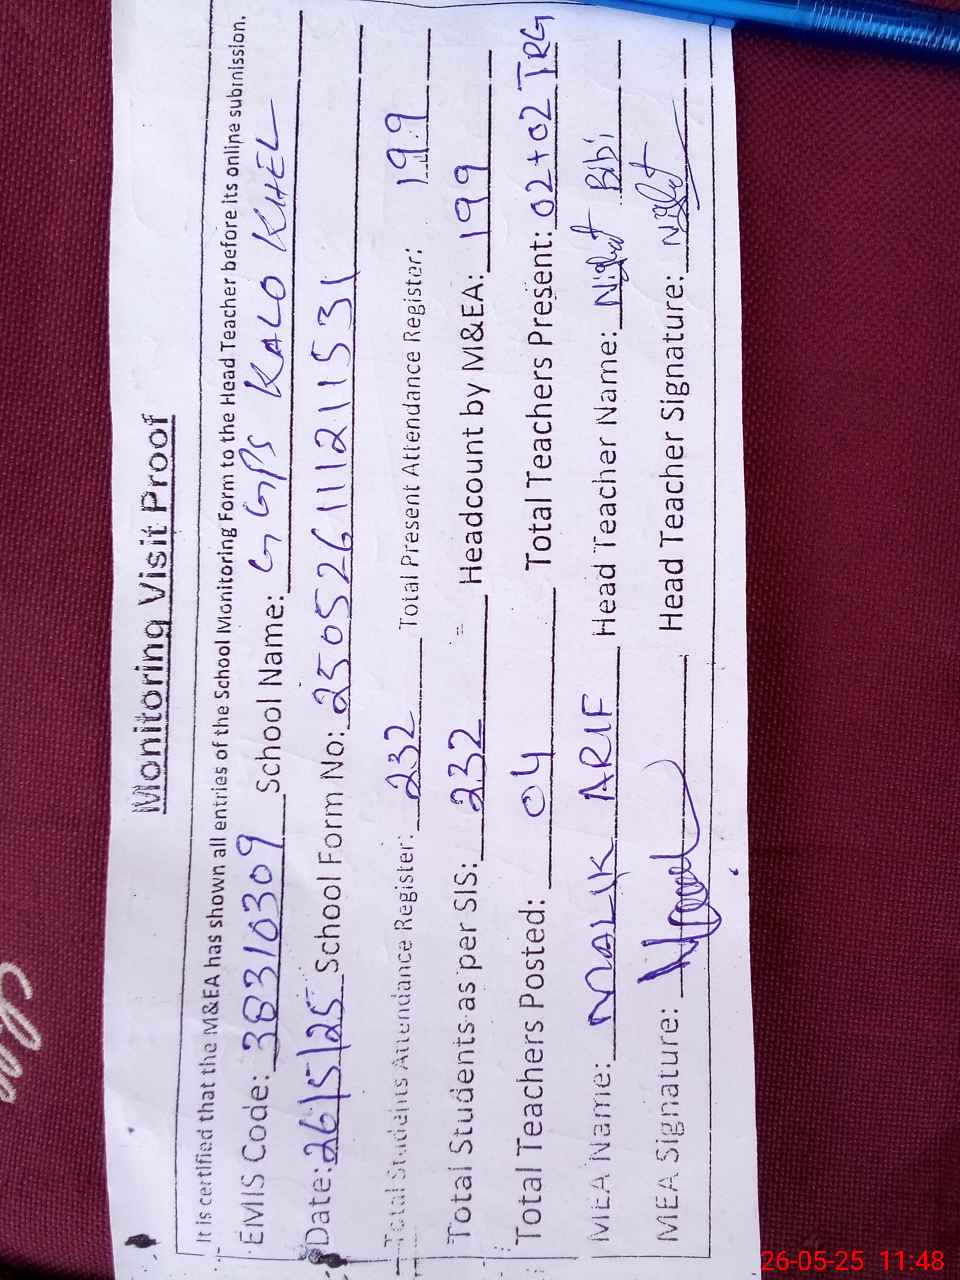 Monitoring Visit Proof
It is certified that the M&EA has shown all entries of the School Monitoring Form to the Head Teacher before its online submission.
EMIS Code: 38310309 School Name: GGPS KALO KHEL
Date: 26/5/25 School Form No: 250526111211531
Total Students Attendance Register: 232 Total Present Attendance Register: 199
Total Students as per SIS: 232 Headcount by M&EA: 199
Total Teachers Posted: 04 Total Teachers Present: 02+02 TRG
MEA Name: MALIK ARIF Head Teacher Name: Nighat Bibi
MEA Signature: Head Teacher Signature: Nighat
26-05-25 11:48